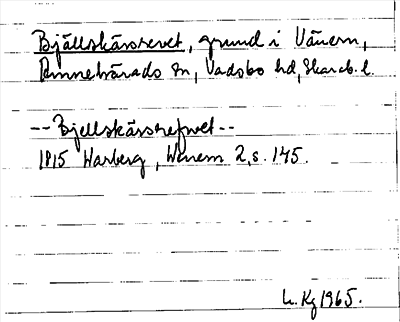 Bjällskärsrevet, grund i Vänern,
Amnehärads sn, Vadsbo hd, Skarab. l.
-- Bjellskärsrefwet --
1815 Warberg, Wenern 2, s. 145.
L. Kg 1965.